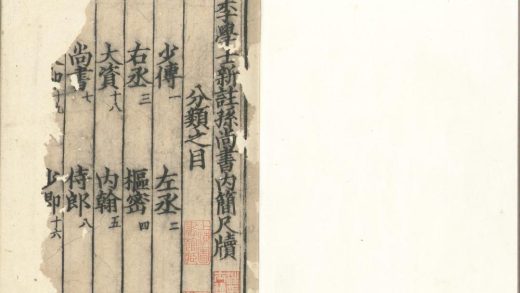 李學士新註孫尚書内簡尺牘
分類之目
少傅一 左丞二
右丞三 樞密四
大資十八 内翰五
尚書七 侍郎八
十六